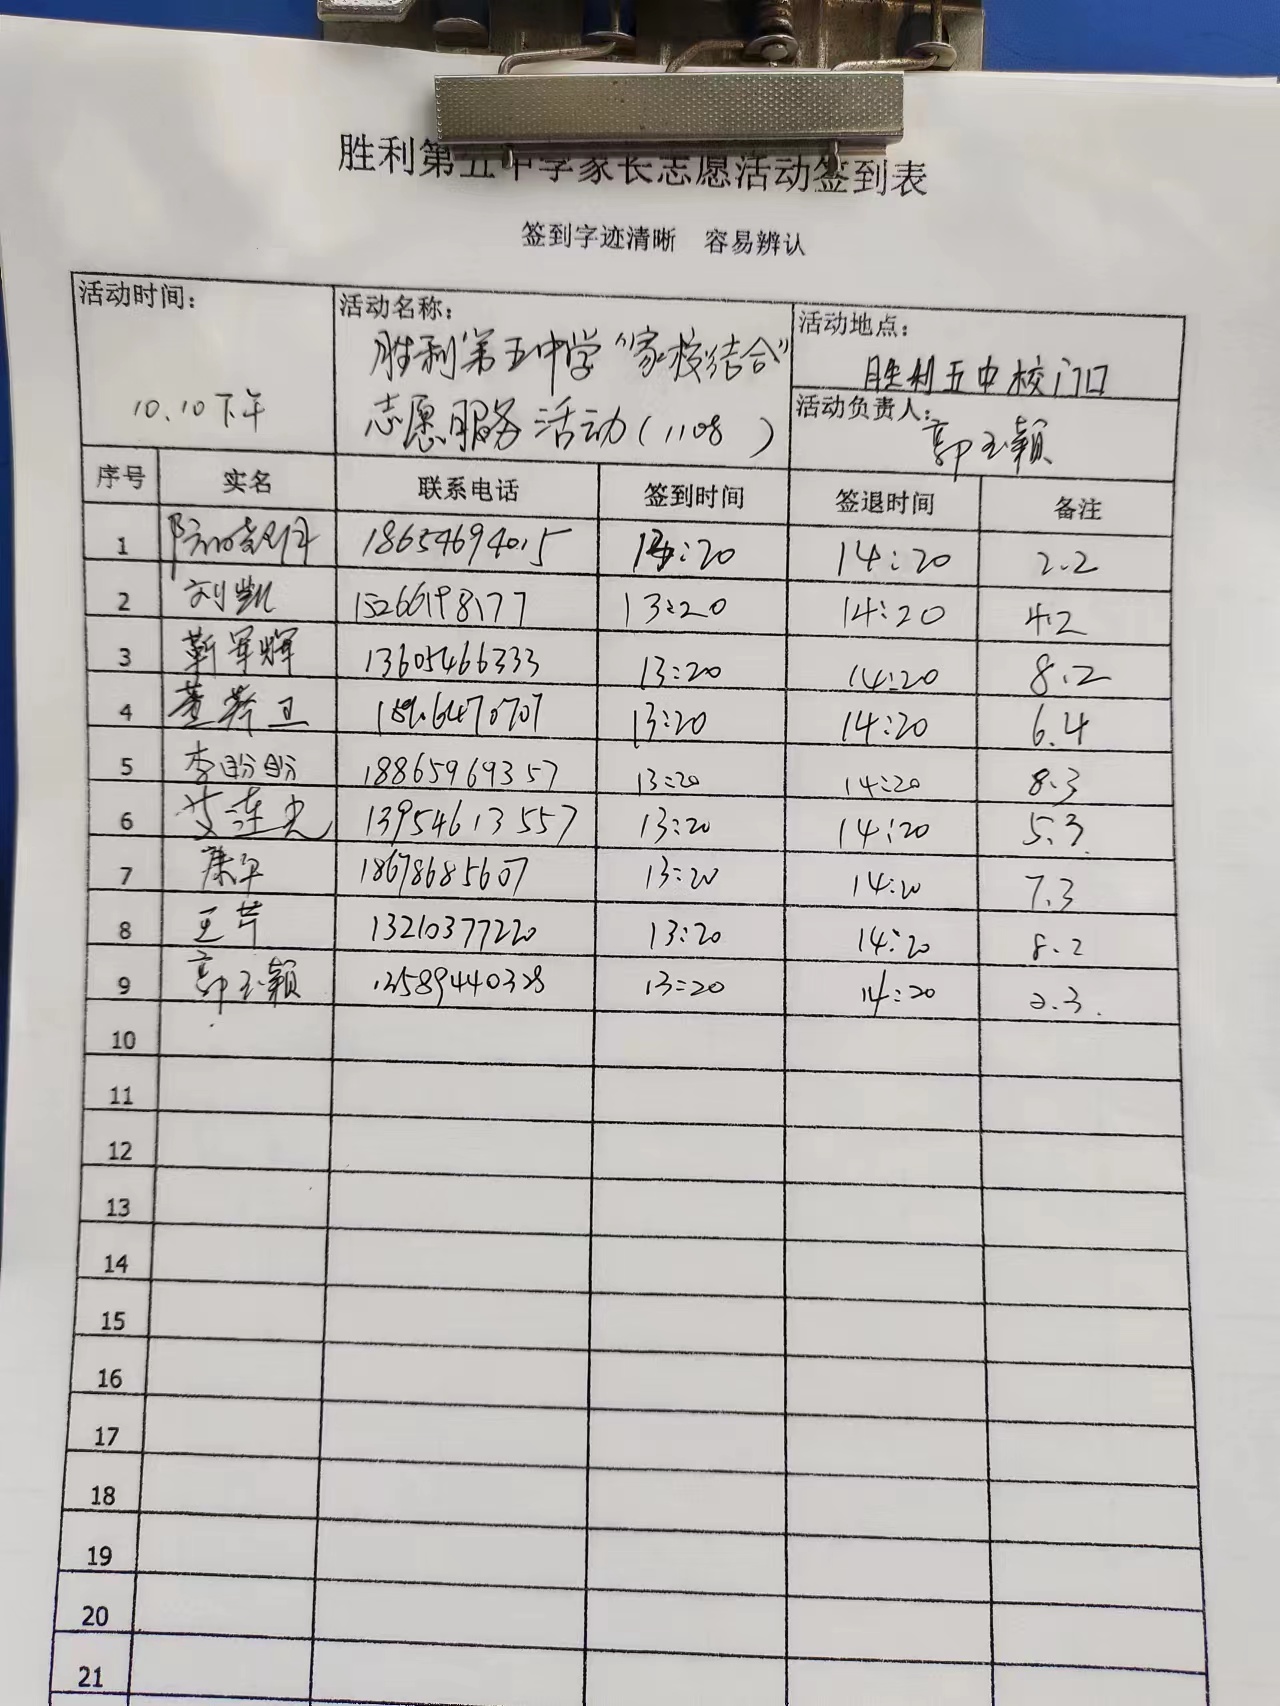 胜利第五中学家长志愿活动签到表
签到字迹清晰 容易辨认
活动时间: 10.10下午
活动名称: 胜利第五中学“家校结合”
志愿服务活动(1108 )
活动地点: 胜利五中校门口
活动负责人: 郭玉颖
序号 实名 联系电话 签到时间 签退时间 备注
1 18654694015 13:20 14:20 2.2
2 刘凯 15266198177 13:20 14:20 4.2
3 靳军辉 13605466333 13:20 14:20 8.2
4 董 卫 13:20 14:20 6.4
5 李盼盼 18865969357 13:20 14:20 8.3
6 艾莲光 13954613557 13:20 14:20 5.3
7 康军 18678685607 13:20 14:20 7.3
8 王芹 13210377220 13:20 14:20 8.2
9 郭玉颖 13589440328 13:20 14:20 2.3.
10
11
12
13
14
15
16
17
18
19
20
21